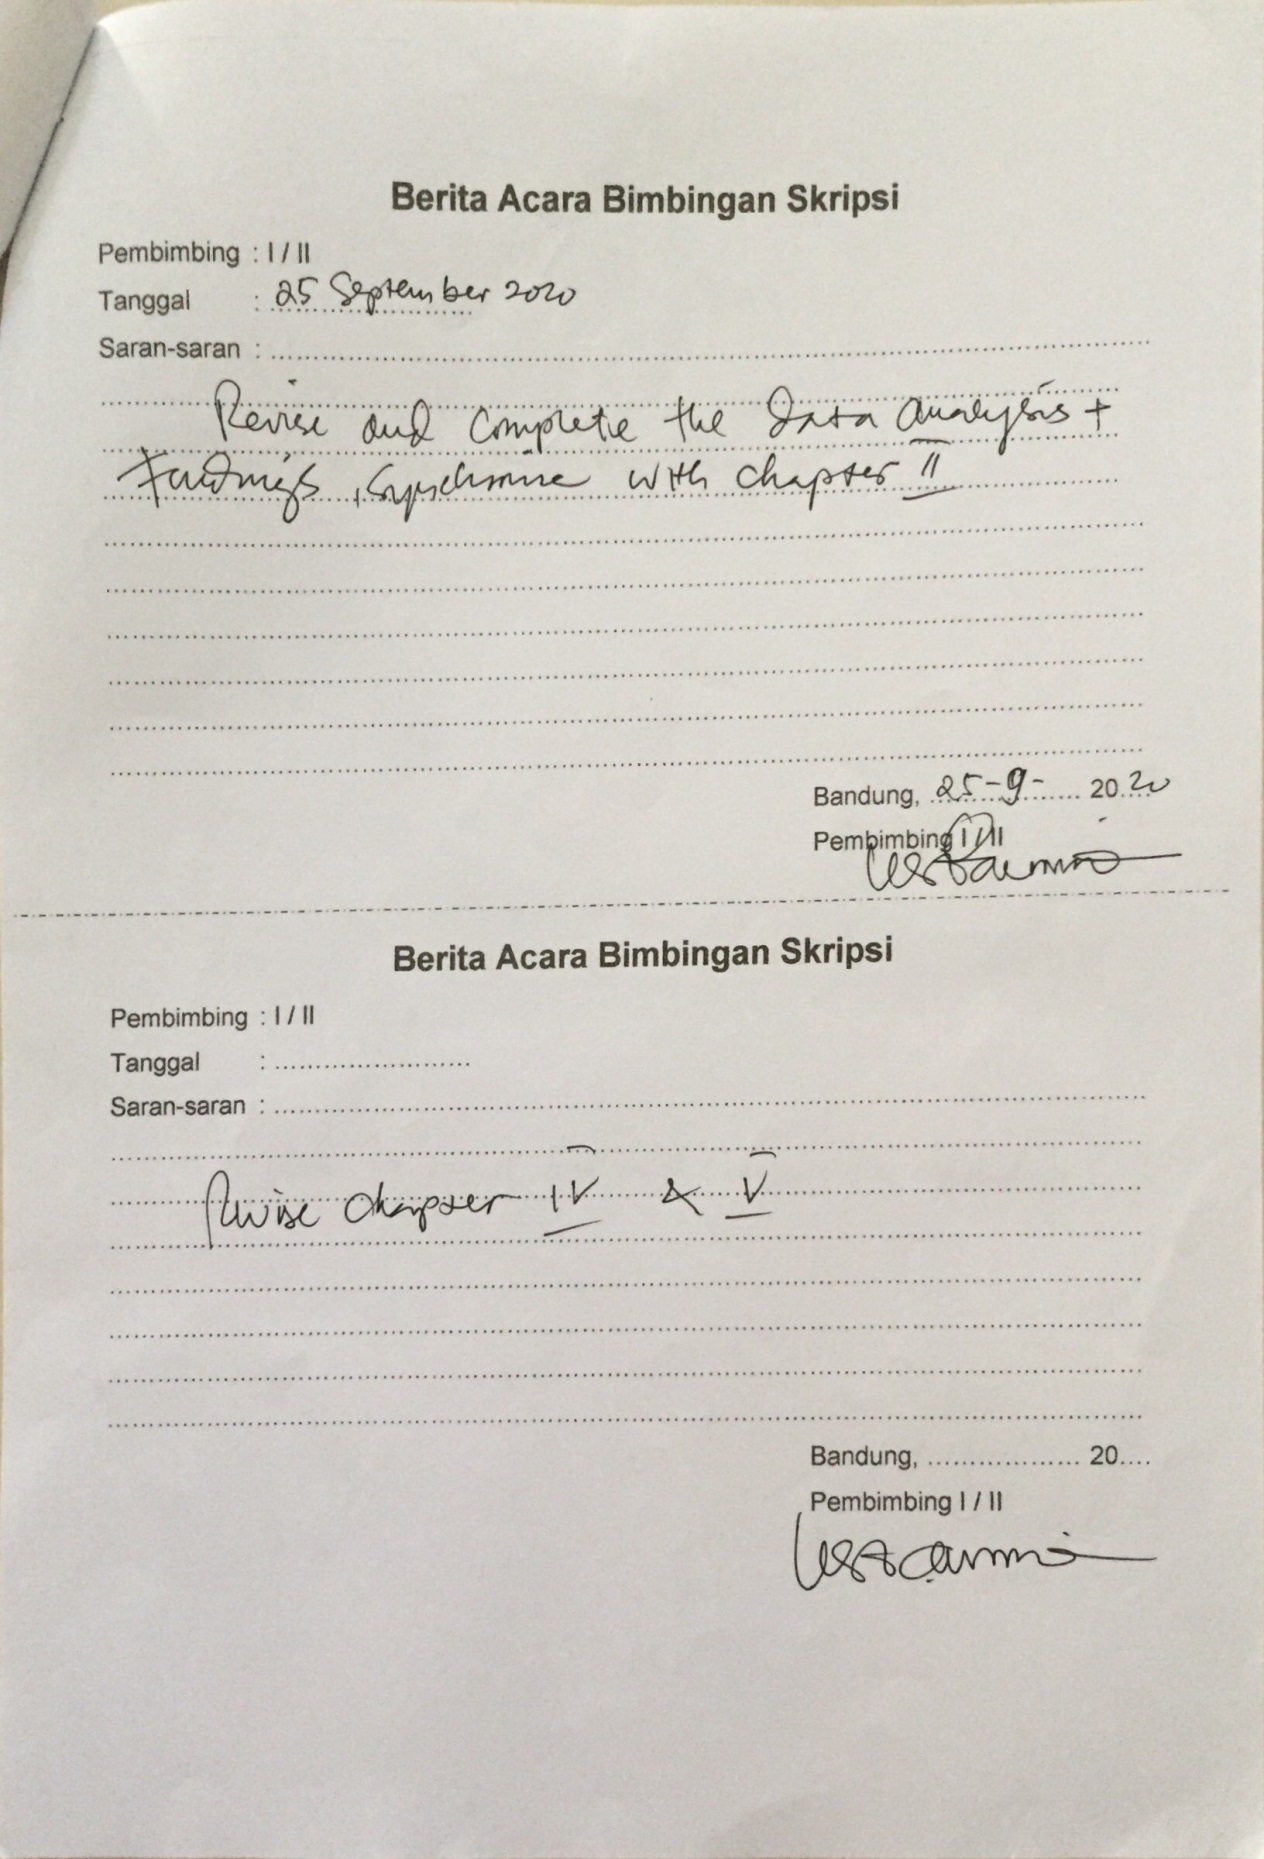 Berita Acara Bimbingan Skripsi
Pembimbing : I / II
Tanggal : 25 September 2020
Saran-saran :
Revise and complete the Data Analysis +
Findings, Synchronize with chapter II
Bandung, 25-9- 2020
Pembimbing I / II
Berita Acara Bimbingan Skripsi
Pembimbing : I / II
Tanggal :
Saran-saran :
Revise chapter IV & V
Bandung, 20
Pembimbing I / II